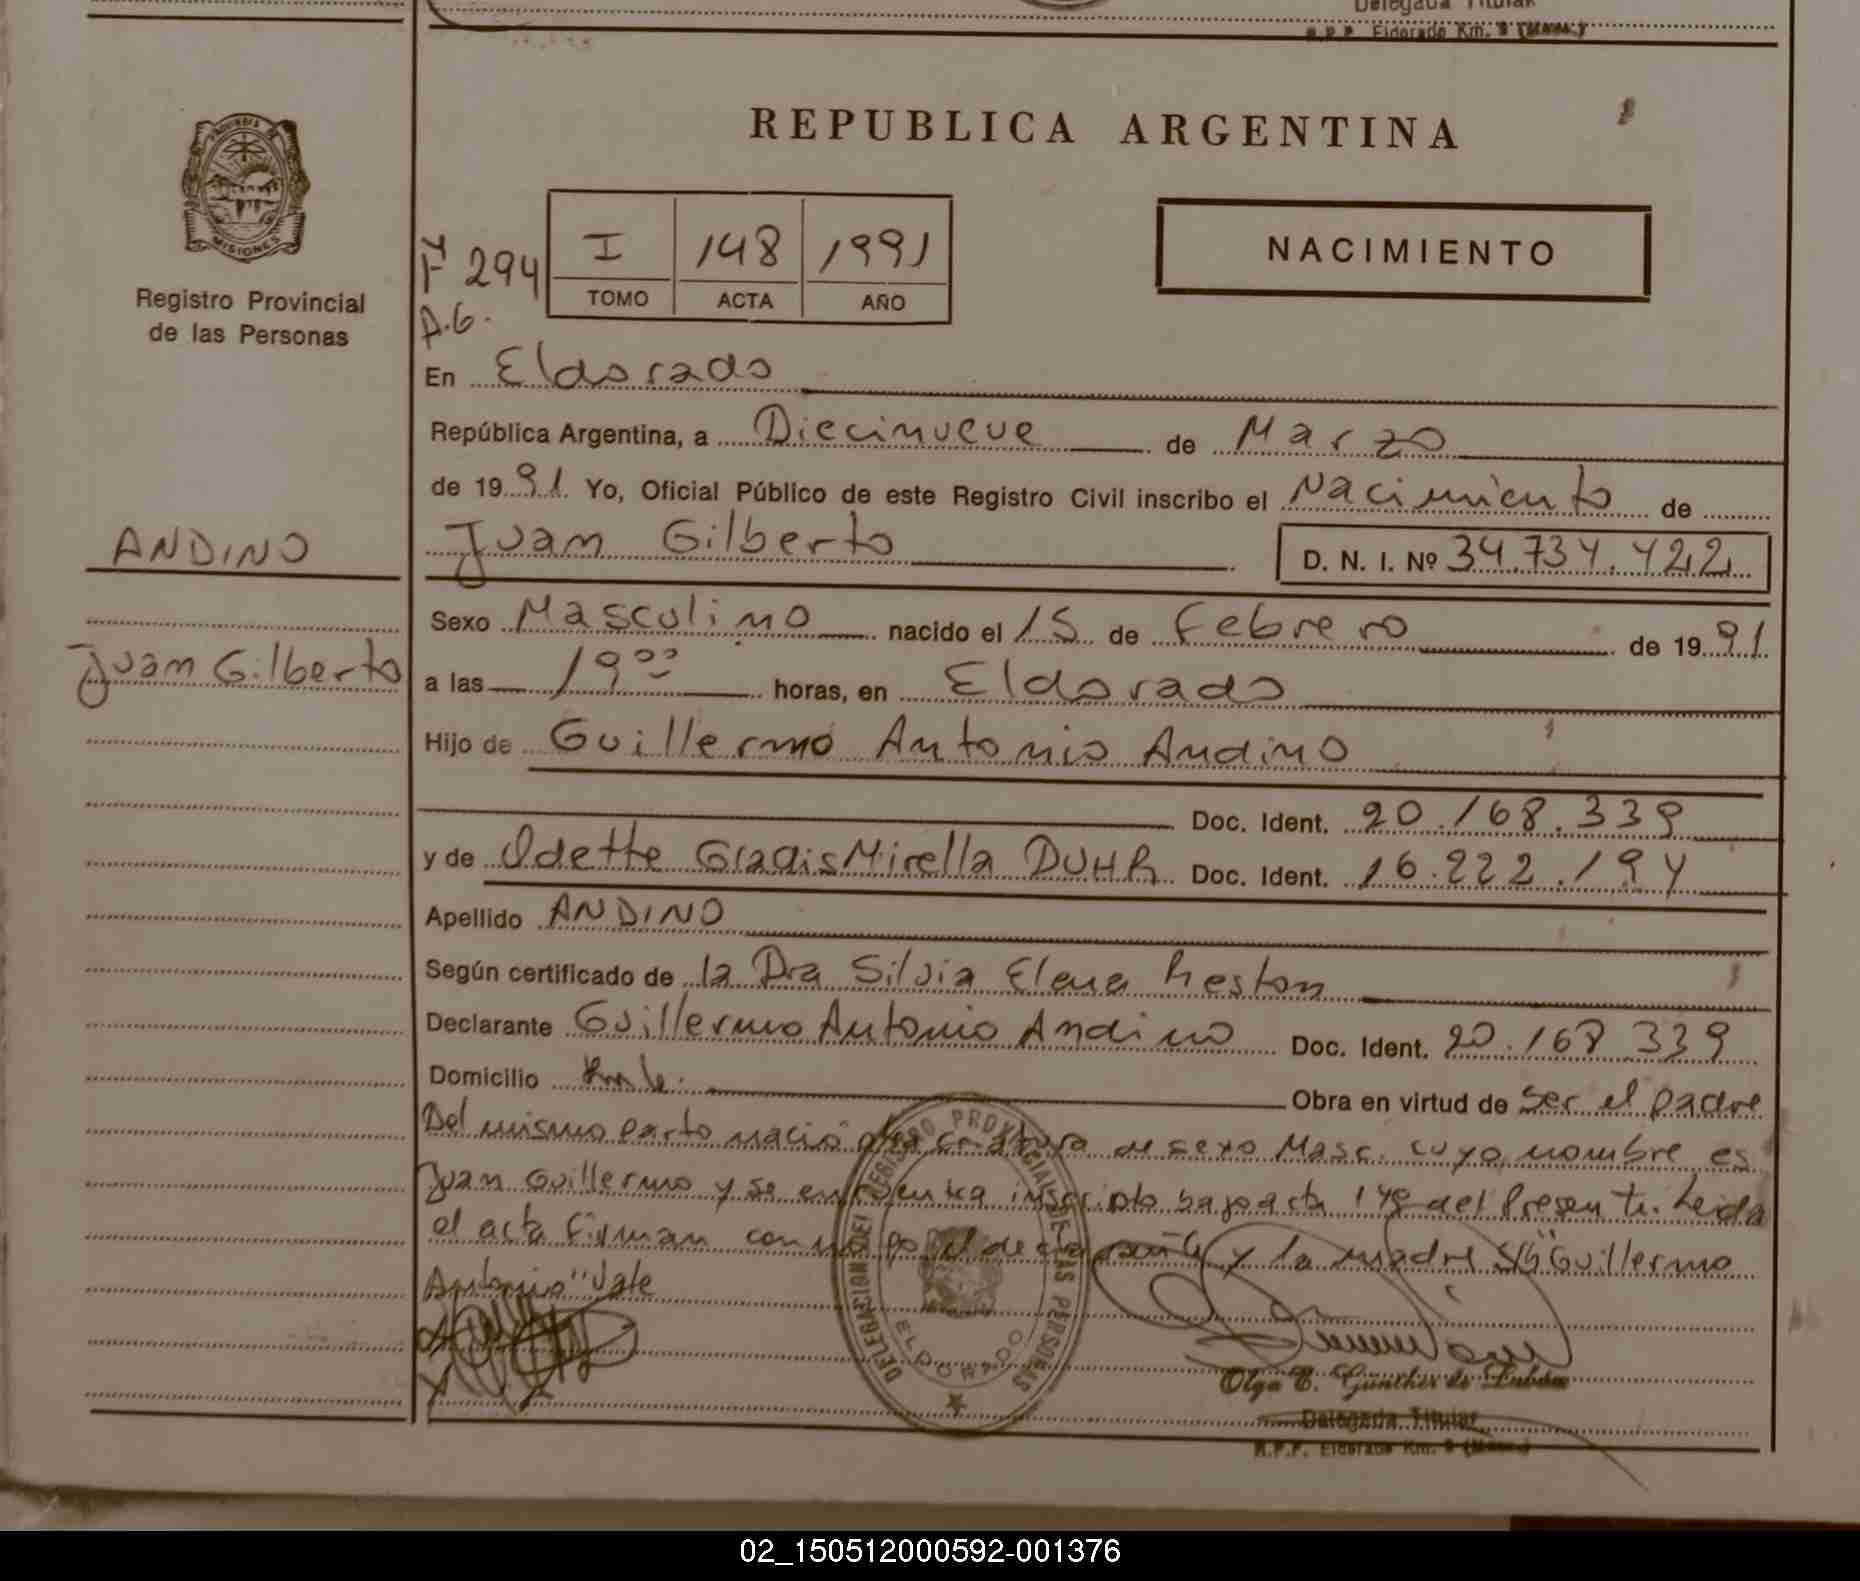 Delegada Titular
R.P.P. Eldorado Km. 9 (Mnes.)
REPUBLICA ARGENTINA
PROVINCIA DE
MISIONES
Registro Provincial
de las Personas
NACIMIENTO
F 294
I 148 1991
TOMO ACTA AÑO
En Eldorado
República Argentina, a Diecinueve de Marzo
de 1991 Yo, Oficial Público de este Registro Civil inscribo el Nacimiento de
ANDINO
Juan Gilberto D. N. I. Nº 34.734.422
Sexo Masculino nacido el 15 de Febrero de 1991
Juan Gilberto
a las 19 00 horas, en Eldorado
Hijo de Guillermo Antonio Andino
Doc. Ident. 20.168.339
y de Odette Gladis Mirella DUHR Doc. Ident. 16.222.194
Apellido ANDINO
Según certificado de la Dra Silvia Elena Reston
Declarante Guillermo Antonio Andino Doc. Ident. 20.168 339
Domicilio Obra en virtud de ser el padre
Del mismo parto nació otra criatura de sexo Masc. cuyo nombre es
Juan Guillermo y se encuentra inscripto bajo acta del Presente. Leida
el acta firman conmigo el declarante y la madre S/B "Guillermo
Antonio" Vale
DELEGACION DEL REGISTRO PROVINCIAL DE LAS PERSONAS
ELDORADO
Olga E. Günther de
Delegada Titular
R.P.P. Eldorado Km. 9 (Mnes.)
02_150512000592-001376